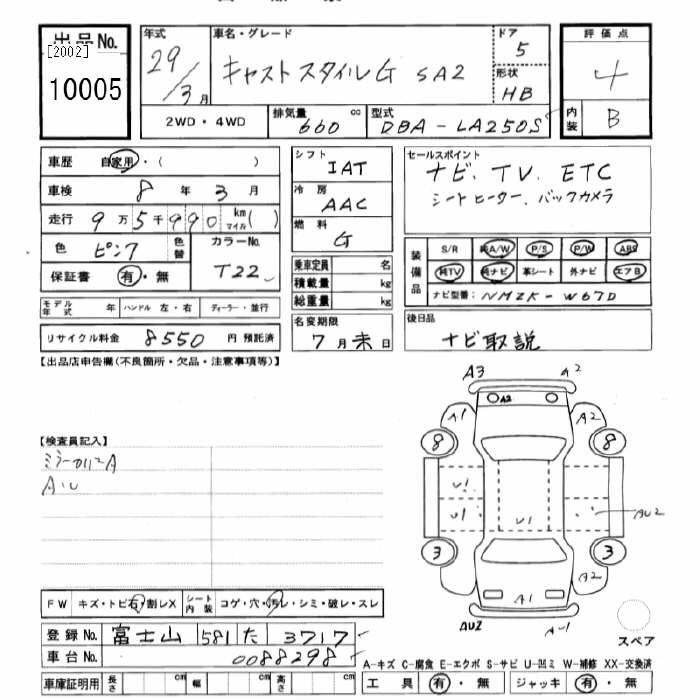 出品No.
[2002]
10005
年式 29/3月
車名・グレード キャストスタイルG SA2
ドア 5
形状 HB
評価点 4
内装 B
2WD・4WD
排気量 660 cc
型式 DBA-LA250S
車歴 自家用・( )
車検 8年3月
走行 9万5千990 km マイル( )
色 ピンク 色替
カラーNo. T22
保証書 有・無
シフト IAT
冷房 AAC
燃料 G
乗車定員 名
積載量 kg
総重量 kg
セールスポイント
ナビ、TV、ETC
シートヒーター、バックカメラ
装備品
S/R 純A/W P/S P/W ABS
純TV 純ナビ 革シート 外ナビ エアB
ナビ型番: NMZK-W67D
モデル年式 年 ハンドル 左・右 ディーラー・並行
リサイクル料金 8550 円 預託済
名変期限 7月末日
後日品 ナビ取説
【出品店申告欄(不良箇所・欠品・注意事項等)】
A3 A2
A2
A1 A2
8 8
【検査員記入】
A・U
U1
U1 U1 AU2
3 3
A1 A2
AU2 AU1
スペア
FW キズ・トビ石・割レX シート内装 コゲ・穴・汚レ・シミ・破レ・スレ
登録No. 富士山 581 た 3717
車台No. 0088298
A-キズ C-腐食 E-エクボ S-サビ U-凹ミ W-補修 XX-交換済
車庫証明用 長さ cm 幅 cm 高さ cm
工具 有・無 ジャッキ 有・無